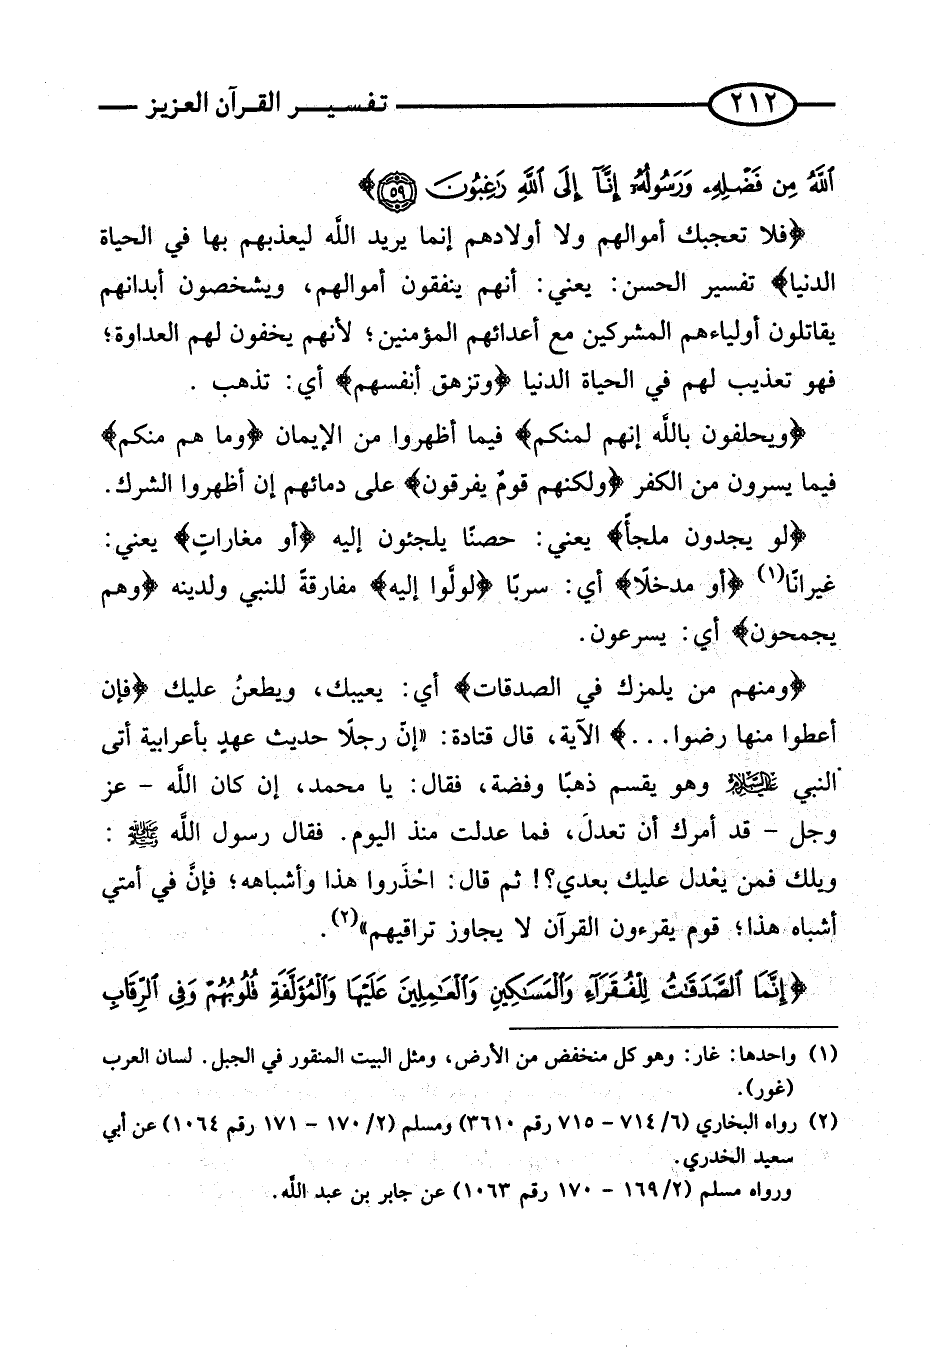 ٢١٢ تفسير القرآن العزيز
ٱللَّهُ مِن فَضْلِهِۦ وَرَسُولُهُۥٓ إِنَّآ إِلَى ٱللَّهِ رَٰغِبُونَ ٥٩﴾
﴿فلا تعجبك أموالهم ولا أولادهم إنما يريد الله ليعذبهم بها في الحياة
الدنيا﴾ تفسير الحسن: يعني: أنهم ينفقون أموالهم، ويشخصون أبدانهم
يقاتلون أولياءهم المشركين مع أعدائهم المؤمنين؛ لأنهم يخفون لهم العداوة؛
فهو تعذيب لهم في الحياة الدنيا ﴿وتزهق أنفسهم﴾ أي: تذهب .
﴿ويحلفون باللَّه إنهم لمنكم﴾ فيما أظهروا من الإيمان ﴿وما هم منكم﴾
فيما يسرون من الكفر ﴿ولكنهم قومٌ يفرقون﴾ على دمائهم إن أظهروا الشرك.
﴿لو يجدون ملجأً﴾ يعني: حصنًا يلجئون إليه ﴿أو مغاراتٍ﴾ يعني:
غيرانًا(١) ﴿أو مدخلًا﴾ أي: سربًا ﴿لولَّوا إليه﴾ مفارقةً للنبي ولدينه ﴿وهم
يجمحون﴾ أي: يسرعون.
﴿ومنهم من يلمزك في الصدقات﴾ أي: يعيبك، ويطعنُ عليك ﴿فإن
أعطوا منها رضوا...﴾ الآية، قال قتادة: «إنّ رجلًا حديث عهدٍ بأعرابية أتى
النبي عليه السلام وهو يقسم ذهبًا وفضة، فقال: يا محمد، إن كان اللَّه – عز
وجل – قد أمرك أن تعدلَ، فما عدلت منذ اليوم. فقال رسول اللَّه ﷺ :
ويلك فمن يعْدل عليك بعدي؟! ثم قال: احْذَروا هذا وأشباهه؛ فإنَّ في أمتي
أشباه هذا؛ قوم يقرءون القرآن لا يجاوز تراقيهم»(٢).
﴿إِنَّمَا ٱلصَّدَقَٰتُ لِلْفُقَرَآءِ وَٱلْمَسَٰكِينِ وَٱلْعَٰمِلِينَ عَلَيْهَا وَٱلْمُؤَلَّفَةِ قُلُوبُهُمْ وَفِى ٱلرِّقَابِ
(١) واحدها: غار: وهو كل منخفض من الأرض، ومثل البيت المنقور في الجبل. لسان العرب
(غور).
(٢) رواه البخاري (٦/ ٧١٤ – ٧١٥ رقم ٣٦١٠) ومسلم (٢/ ١٧٠ – ١٧١ رقم ١٠٦٤) عن أبي
سعيد الخدري.
ورواه مسلم (٢/ ١٦٩ – ١٧٠ رقم ١٠٦٣) عن جابر بن عبد اللَّه.